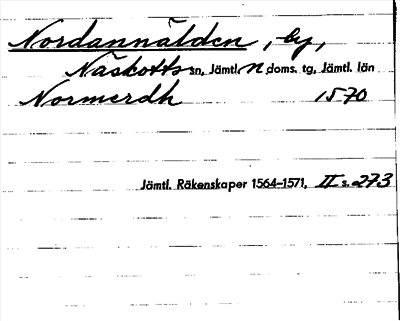 Nordannälden, by,
Näskotts sn, Jämtl. N. doms. tg, Jämtl. län
Normerdh 1570
Jämtl. Räkenskaper 1564–1571, II s. 273